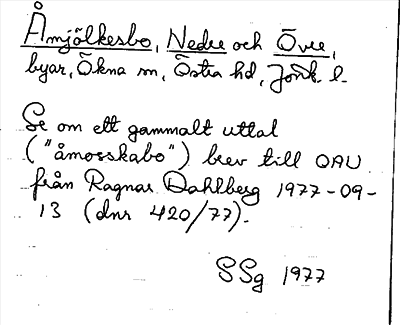 Åmjölkesbo, Nedre och Övre,
byar, Ökna sn, Östra hd, Jönk. l.
Se om ett gammalt uttal
("åmosskabo") brev till OAU
från Ragnar Dahlberg 1977-09-
13 (dnr 420/77).
SSg 1977